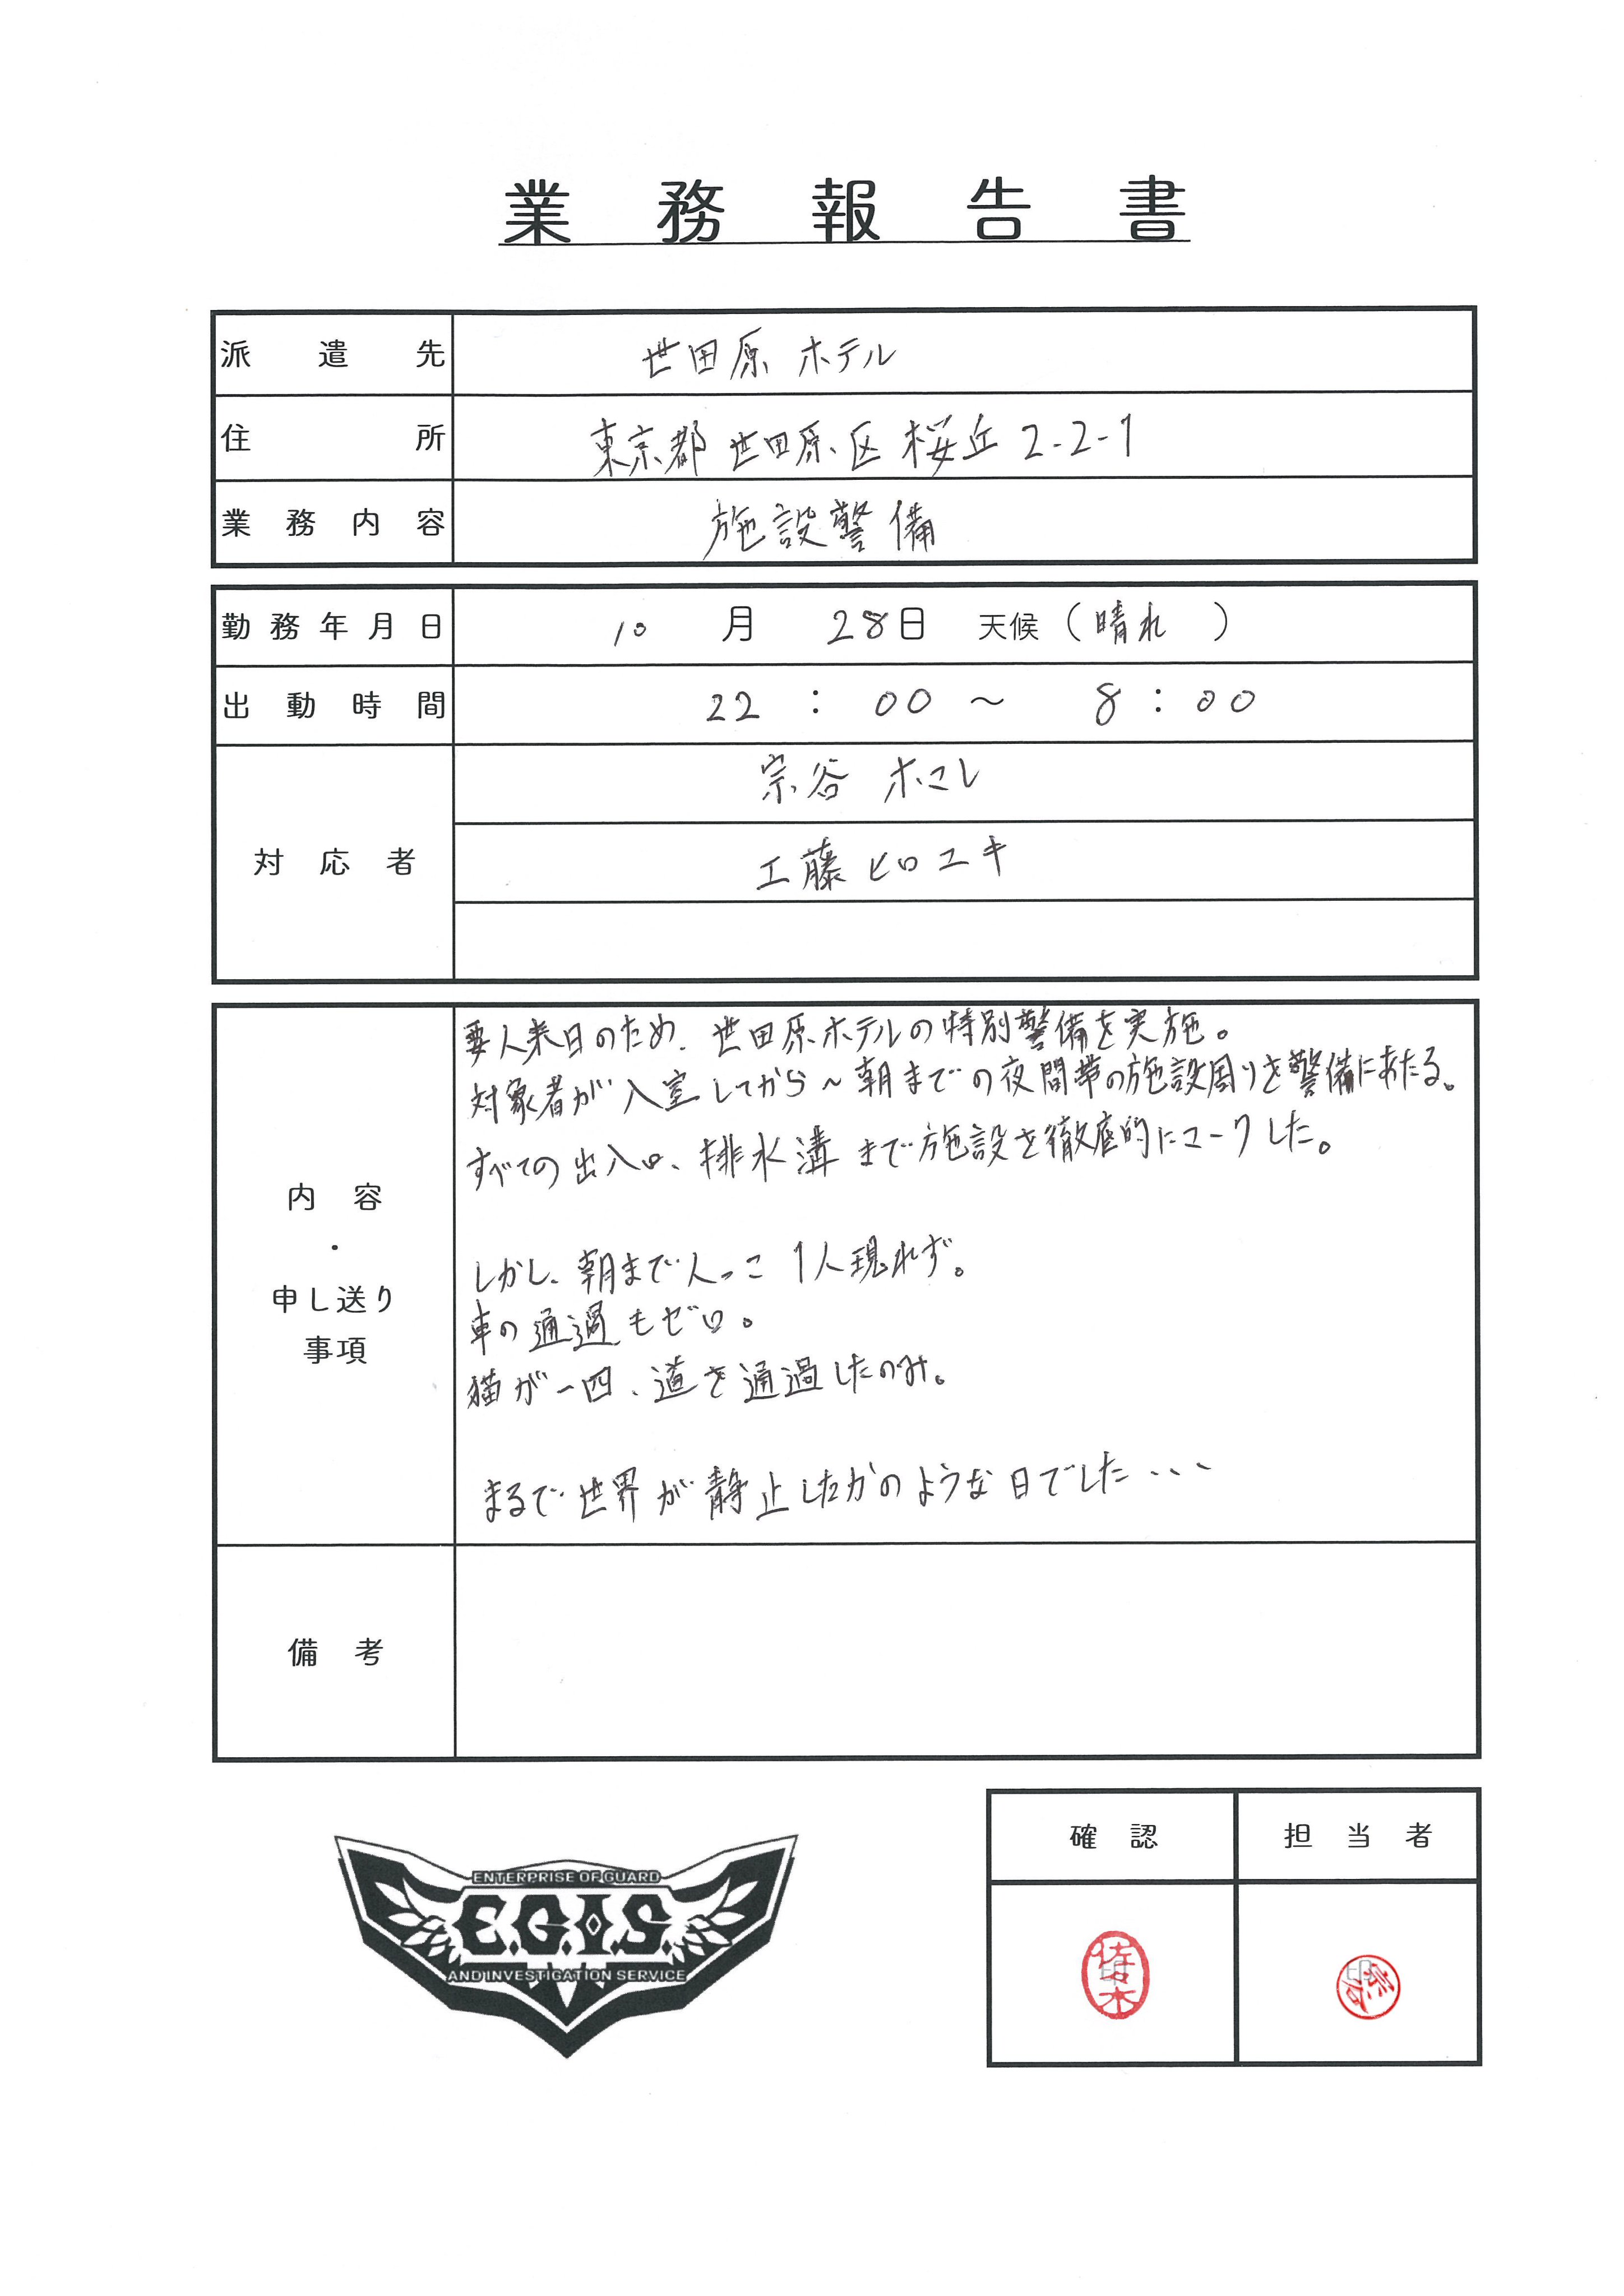 業務報告書
派遣先 世田原ホテル
住所 東京都世田原区桜丘2-2-1
業務内容 施設警備
勤務年月日 10月28日 天候(晴れ)
出動時間 22:00～8:00
対応者 宗谷ホマレ
工藤ヒロユキ
内容・申し送り事項
要人来日のため、世田原ホテルの特別警備を実施。
対象者が入室してから～朝までの夜間帯の施設周りを警備にあたる。
すべての出入口、排水溝まで施設を徹底的にマークした。
しかし、朝まで人っこ1人現れず。
車の通過もゼロ。
猫が一匹、道を通過したのみ。
まるで世界が静止したかのような日でした・・・
備考
ENTERPRISE OF GUARD
E.G.I.S.
AND INVESTIGATION SERVICE
確認 担当者
佐々木 宗谷
印 印